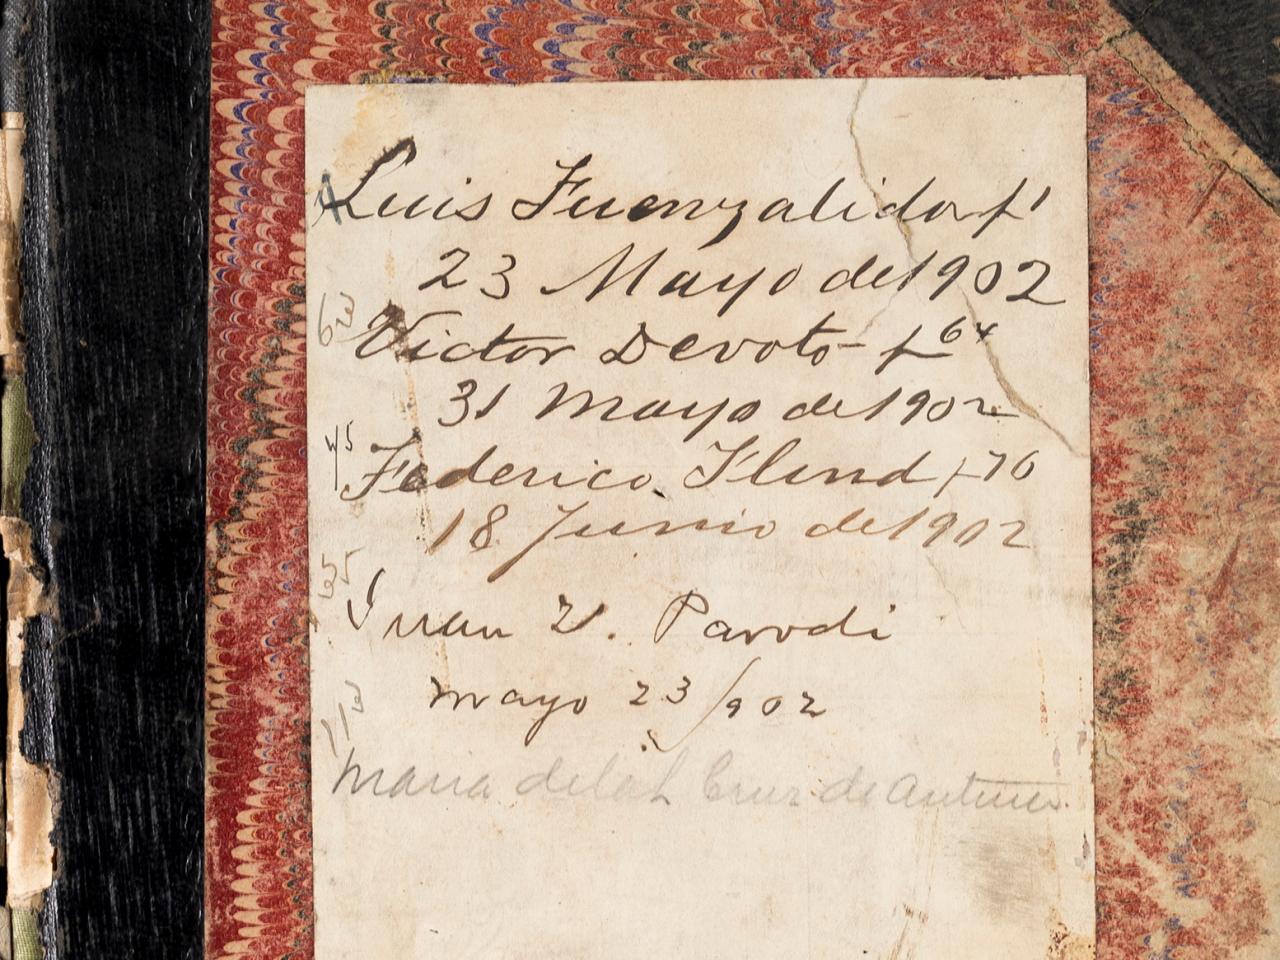 Luis Fuenzalida f 1
23 Mayo de 1902
Victor Devoto - f 64
31 Mayo de 1902
Federico f 76
18 Junio de 1902
Juan V. Parodi
Mayo 23/902
Maria de la Cruz de